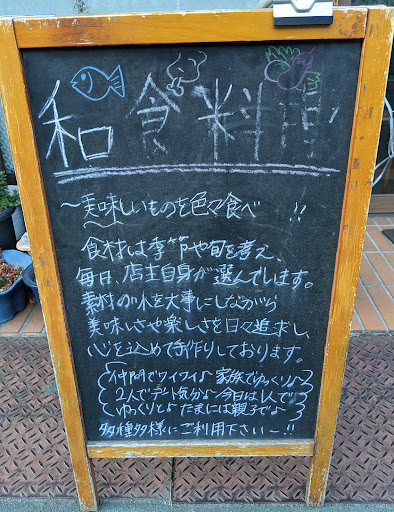 和食料理
～美味しいものを色々食べ !!
食材は季節や旬を考え、
毎日、店主自身が選んでいます。
素材の味を大事にしながら
美味しさや楽しさを日々追求し、
心を込めて手作りしております。
仲間でワイワイ♪ 家族でゆっくり♪
2人でデート気分♪ 今日は1人で♪
ゆっくりと♪ たまには親子で♪
多種多様にご利用下さいー!!